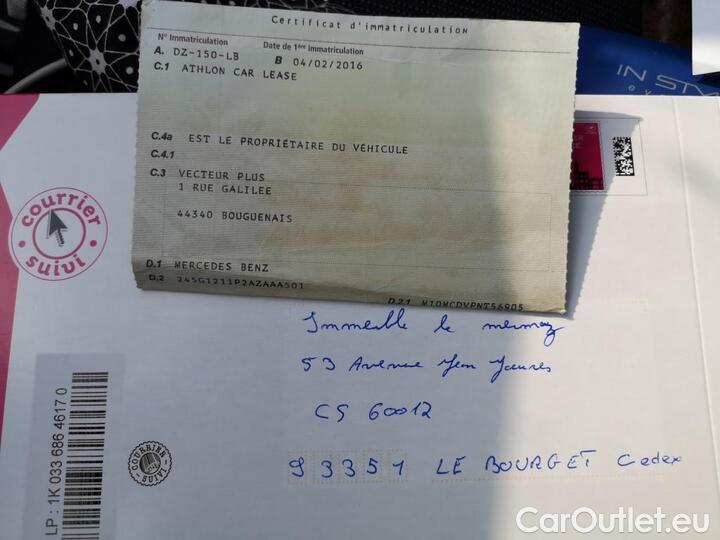 Certificat d'immatriculation
N° Immatriculation
Date de 1ère immatriculation
A. DZ-150-LB
B 04/02/2016
C.1 ATHLON CAR LEASE
C.4a EST LE PROPRIÉTAIRE DU VÉHICULE
C.4.1
C.3 VECTEUR PLUS
1 RUE GALILEE
44340 BOUGUENAIS
D.1 MERCEDES BENZ
D.2 245G1211P2AZAAA501
D.2.1 M10MCDVPNT56905
IN STY
courrier
suivi
Immeuble le
53 Avenue Jean Jaurès
CS 60012
93351 LE BOURGET Cedex
LP : 1K 033 686 4617 0
COURRIER
SUIVI
CarOutlet.eu